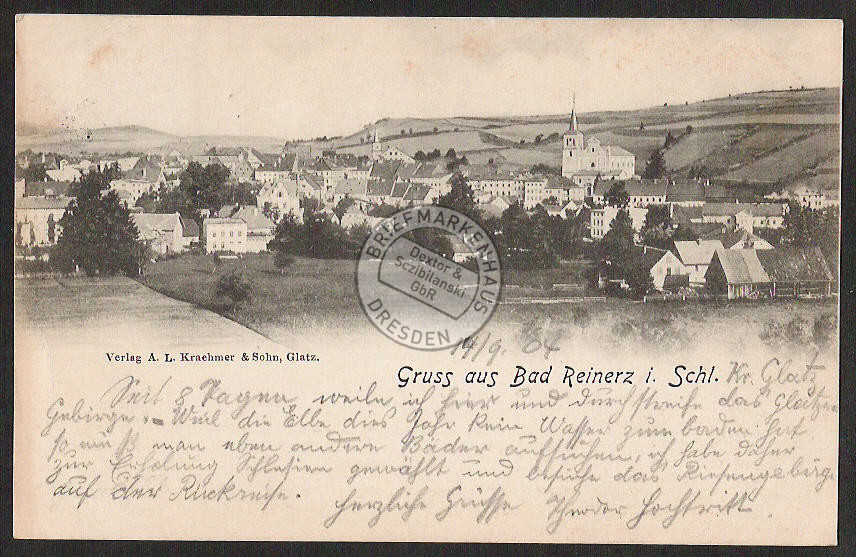 BRIEFMARKENHAUS
Dextor &
Sczibilanski
GbR
DRESDEN
Verlag A. L. Kraehmer & Sohn, Glatz.
14/9. 04
Gruss aus Bad Reinerz i. Schl. Kr. Glatz
Seit 8 Tagen weile ich hier und durchstreife das Glatzer
Gebirge. - Weil die Elbe dies Jahr kein Wasser zum baden hat
so muß man eben andere Bäder aufsuchen, ich habe daher
zur Erholung Schlesien gewählt und besuche das Riesengebirge
auf der Rückreise. Herzliche Grüsse Theodor